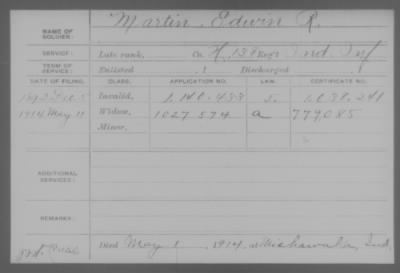 NAME OF SOLDIER: Martin, Edwin R.
SERVICE: Late rank, Co. H, 138 Reg't Ind. Inf
TERM OF SERVICE: Enlisted , 1 Discharged , 1
DATE OF FILING. CLASS. APPLICATION NO. LAW. CERTIFICATE NO.
Invalid, 1.140.433
1914 May 11 Widow, 1027574 a 777,085
Minor,
ADDITIONAL SERVICES:
REMARKS:
Died May 1 1914, at Mishawaka, Ind.